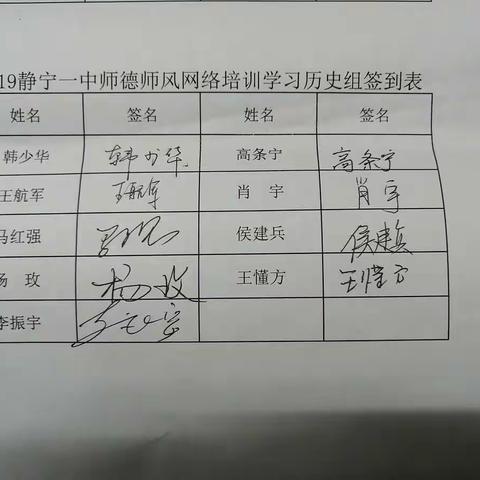 19静宁一中师德师风网络培训学习历史组签到表
姓名 签名 姓名 签名
韩少华 韩少华 高条宁 高条宁
王航军 王航军 肖 宇 肖宇
马红强 侯建兵 侯建兵
杨 玫 杨玫 王懂方 王懂方
李振宇